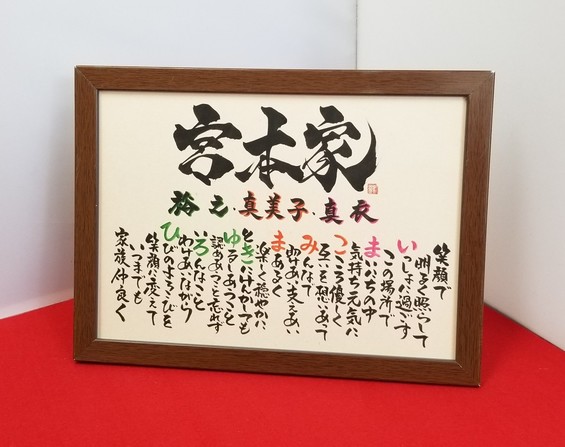 宮本家
裕之・真美子・真衣
笑顔で
明るく照って
いっしょに過ごす
この場所で
まいにちの中
気持ち元気に
こころ優しく
互いを想いあって
みんなで
助け支えあい
まあるく
楽しく穏やかに
ときにけんかしても
ゆるしあうこと
認めあうこと忘れず
いろんなこと
わけあいながら
ひびのよろこびを
笑顔に変えて
いつまでも
家族仲良く